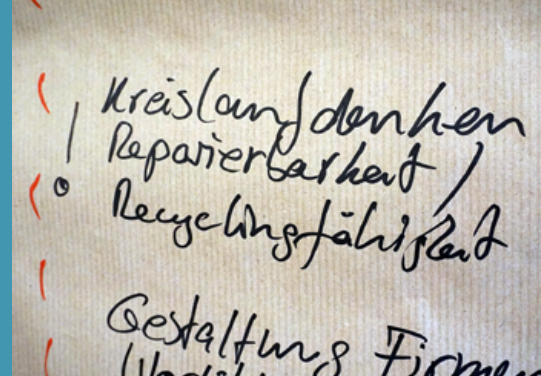 ! Kreislaufdenken
Reparierbarkeit /
Recyclingfähigkeit
Gestaltung Firmen